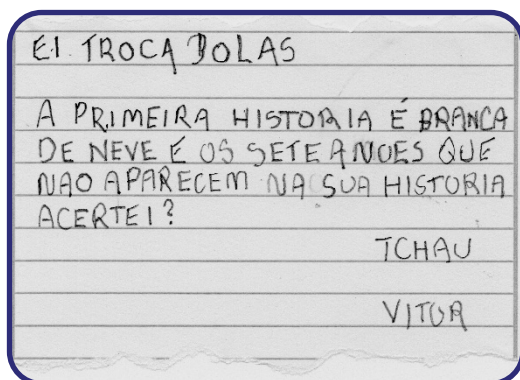 EI. TROCA BOLAS
A PRIMEIRA HISTORIA É BRANCA
DE NEVE E OS SETE ANOES QUE
NAO APARECEM NA SUA HISTORIA
ACERTEI?
TCHAU
VITOR